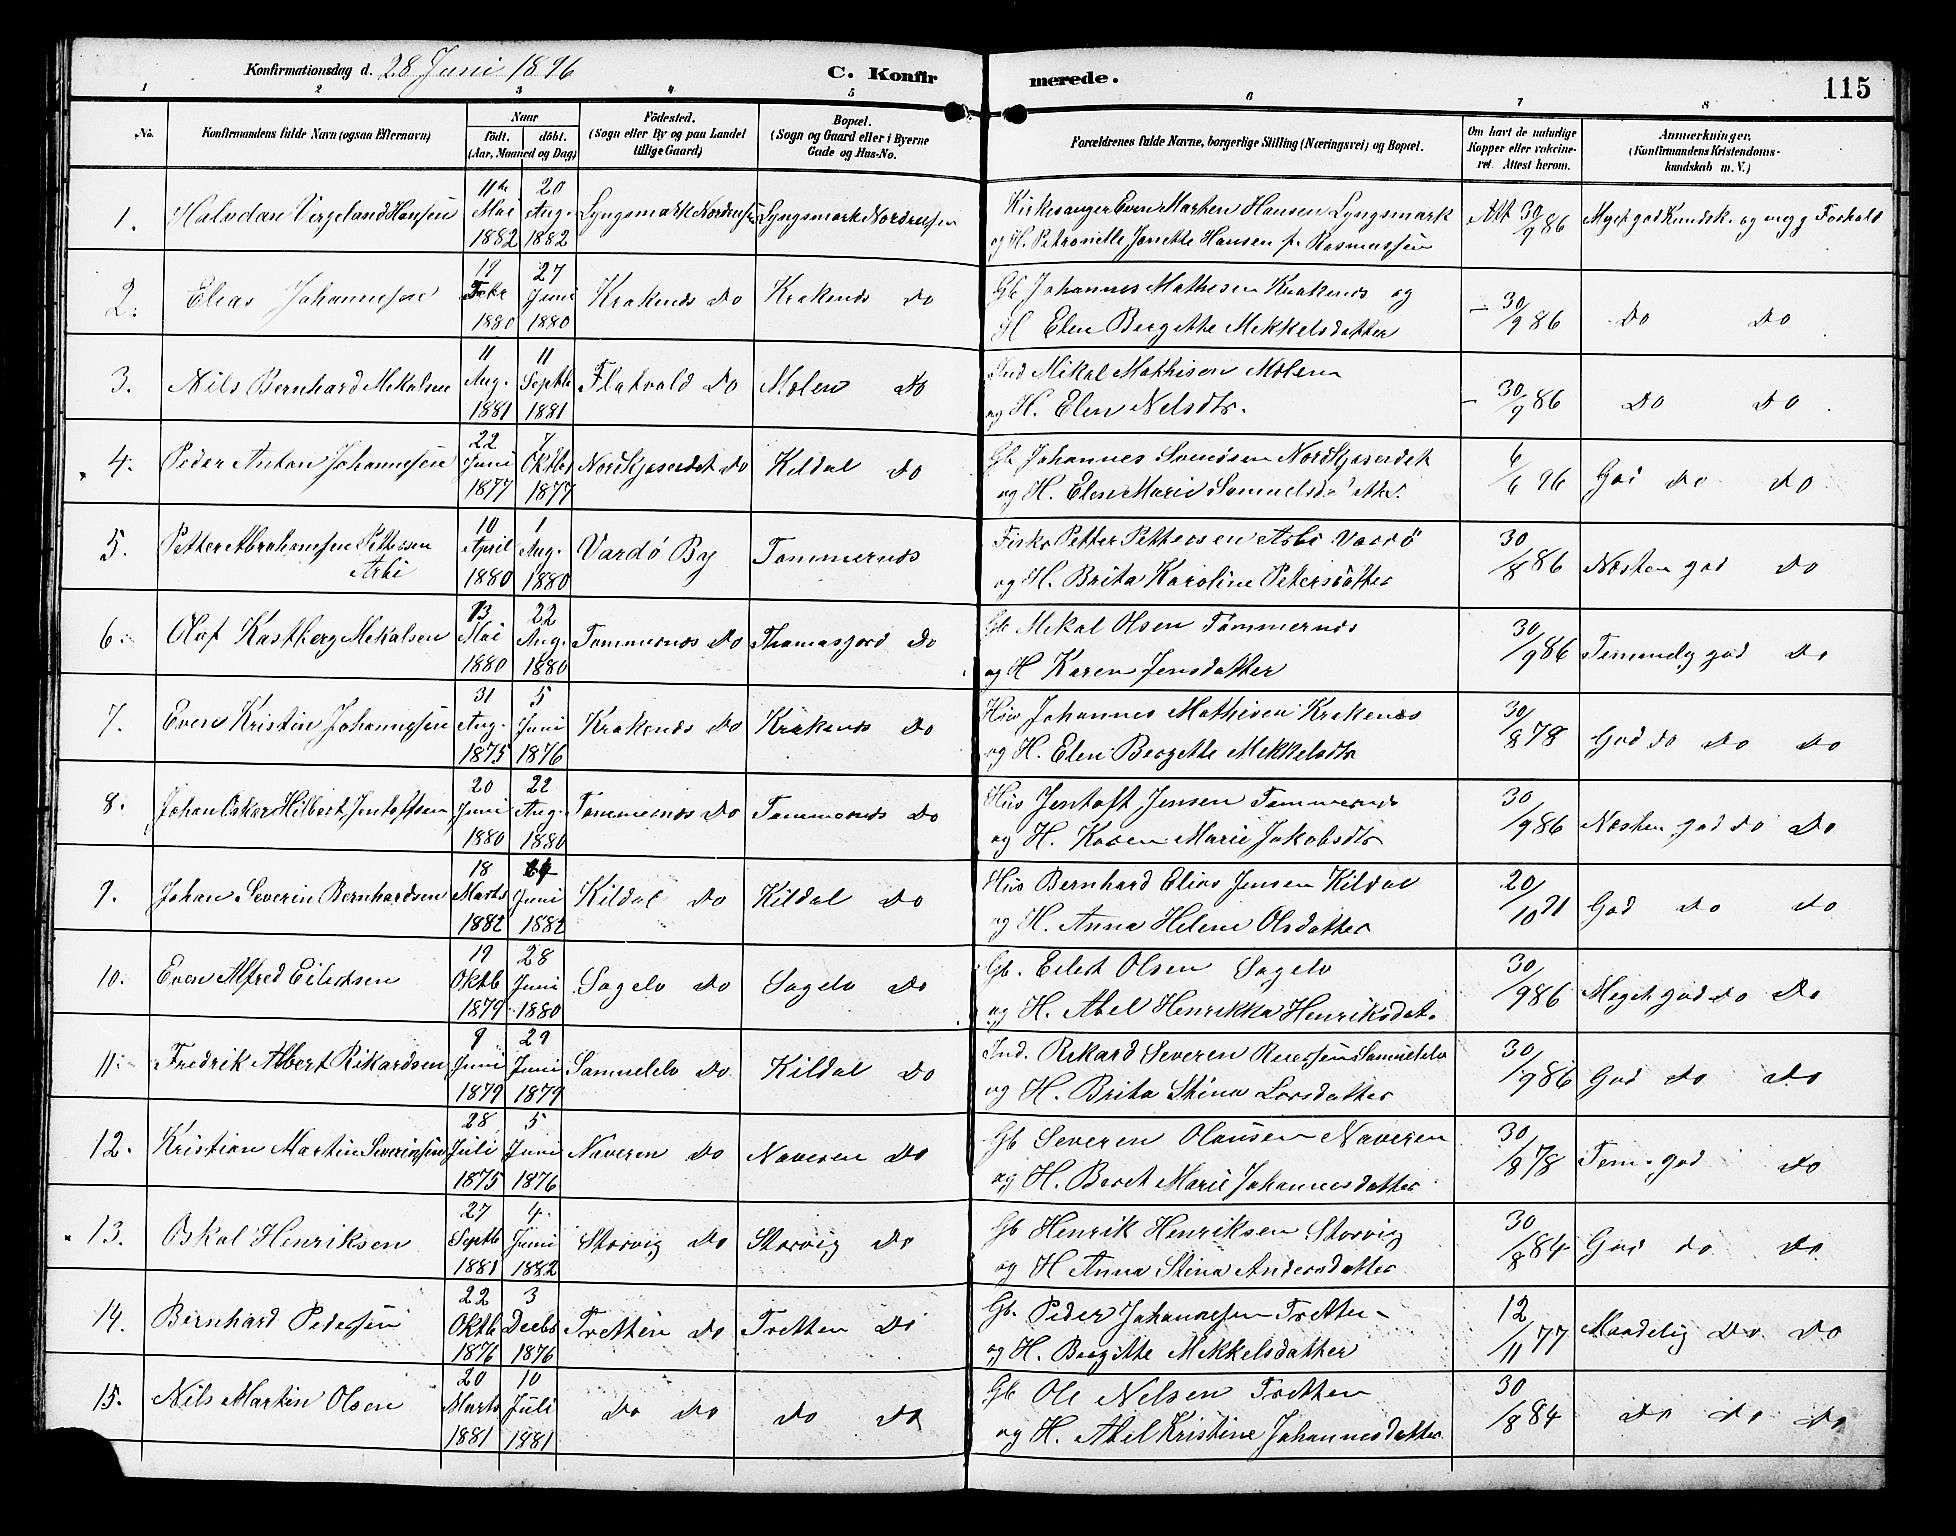 Konfirmationsdag d. 28 Juni 1896 C. Konfirmerede. 115
1 2 3 4 5 6 7 8
No. Konfirmandens fulde Navn (ogsaa Efternavn) Naar født. døbt. (Aar, Maaned og Dag) Fødested. (Sogn eller By og paa Landet tillige Gaard) Bopæl. (Sogn og Gaard eller i Byerne Gade og Hus-No. Forældrenes fulde Navne, borgerlige Stilling (Næringsvei) og Bopæl. Om havt de naturlige Kopper eller vakcineret. Attest herom. Anmerkninger. (Konfirmandens Kristendomskundskab m. V.)
1. Halvdan Vergeland Hansen 11te Mai 1882 20 Aug. 1882 Lyngsmark Lyngsmark Kirkesanger Even Marken Hansen Lyngsmark Att 30/9 86 Meget god Kundsk. og Forhold
og H. Petronelle Janette Hansen f. Rasmussen
2. Elias Johannesen 19 Febr 1880 27 Juni 1880 Krakenæs Do Krakenæs Do Gb Johannes Mathisen Krakenæs og - 30/9 86 Do Do
H Elen Bergitte Mekkelsdatter
3. Nils Bernhard Mekalsen 11 Aug. 1881 11 Septb 1881 Flatvold Do Molen Do Ind Mikal Mathisen Molen - 30/9 86 Do Do
og H. Elen Nelsdtr.
4. Peder Anton Johannesen 22 Juni 1877 7 Oktbr 1877 Nordkjoserdet Do Kildal Do Gb Johannes Svendsen Nordkjoserdet 6/6 96 God Do Do
og H. Elen Marie Samuelsdatter
5. Petter Abrahamsen Pettersen Arbi 10 April 1880 1 Aug. 1880 Vardö By Tømmernæs Fisker Petter Pettersen Arbi Vardö 30/8 86 Næsten god Do
og H. Brita Karoline Petersdatter
6. Olaf Kastberg Mekalsen 13 Mai 1880 22 Aug. 1880 Tømmernæs Do Thomasjord Do Gb Mekal Olsen Tømmernæs 30/9 86 Temmelig god Do
og H Karen Jensdatter
7. Even Kristin Johannesen 31 Aug. 1875 5 Juni 1876 Krakenæs Do Krakenæs Do Hus Johannes Mathisen Krakenæs 30/8 78 God do Do Do
og H. Elen Bergette Mekkelsdtr
8. Johan Oskar Hilbert Jentoftsen 20 Juni 1880 22 Aug. 1880 Tømmernæs Do Tømmernæs Do Hus Jentoft Jensen Tømmernæs 30/9 86 Næsten god do Do
og H. Karen Marie Jakobsdtr
9. Johan Severin Bernhardsen 18 Marts 1882 Juni 1882 Kildal Do Kildal Do Hus Bernhard Elias Jensen Kildal 20/10 91 God Do Do
og H. Anna Helene Olsdatter
10. Even Alfred Eilertsen 19 Oktb 1879 28 Juni 1880 Sagelv Do Sagelv Do Gb. Eilert Olsen Sagelv 30/9 86 Meget god Do Do
og H. Abel Henrikka Henriksdat.
11. Fredrik Albert Rikardsen 9 Juni 1879 29 Juni 1879 Samuelelv Do Kildal Do Ind. Rikard Severen Samuelelv 30/9 86 God Do Do
og H. Brita Stina Larsdatter
12. Kristian Martin Severinsen 28 Juli 1875 5 Juni 1876 Naveren Do Naveren Do Gb Severen Olausen Naveren 30/8 78 Tem. god Do
og H. Beret Marie Johannesdatter
13. Oskal Henriksen 27 Septb 1881 4. Juni 1882 Storvig Do Storvig Do Gb Henrik Henriksen Storvig 30/8 84 God do Do
og H Anna Stina Andersdatter
14. Bernhard Pedersen 22 Oktb 1876 3 Decbr 1876 Tretten Do Tretten Do Gb. Peder Johannesen Tretten 12/11 77 Maadelig Do Do
og H. Bergitte Mekkelsdatter
15. Nils Martin Olsen 20 Marts 1881 10 Juli 1881 Do Do Do Do Gb Ole Nelsen Tretten 30/8 84 Do Do Do
og H. Abel Kristine Johannesdatter